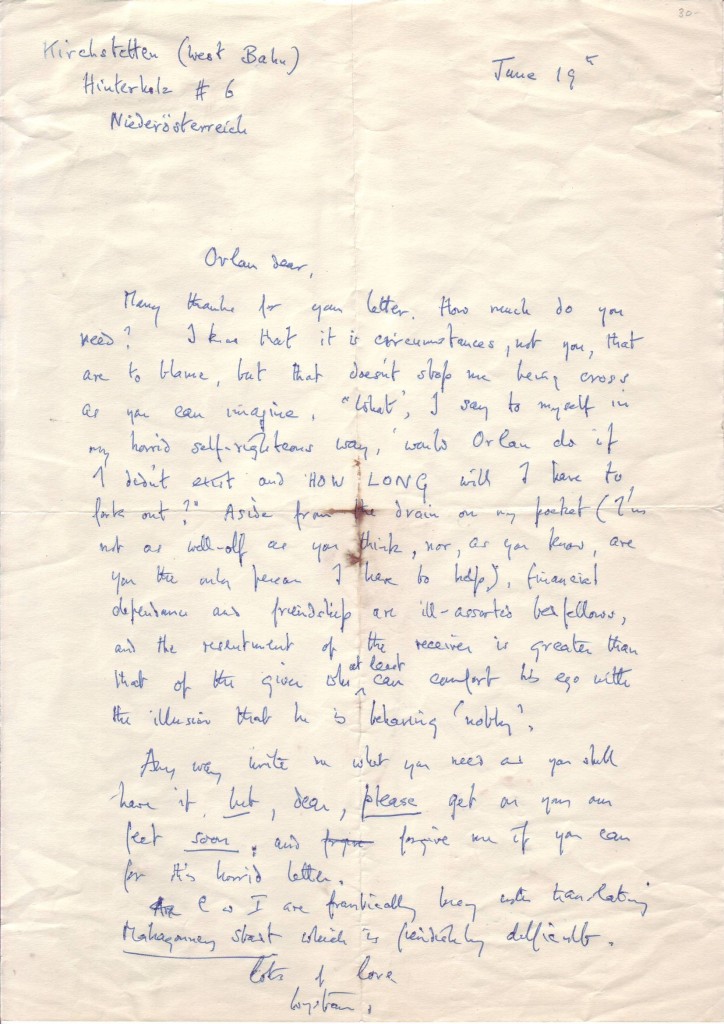 30-
Kirchstetten (West Bahn)
June 19th
Hinterholz # 6
Niederösterreich
Orlan dear,
Many thanks for your letter. How much do you
need? I know that it is circumstances, not you, that
are to blame, but that doesn't stop me being cross
as you can imagine. "What', I say to myself in
my horrid self-righteous way, 'would Orlan do if
I didn't exist and HOW LONG will I have to
fork out?" Aside from the drain on my pocket (I'm
not as well-off as you think, nor, as you know, are
you the only person I have to help), financial
dependance and friendship are ill-assorted bedfellows,
and the resentment of the receiver is greater than
that of the giver who at least can comfort his ego with
the illusion that he is behaving 'nobly'.
Any way write me what you need and you shall
have it, but, dear, please get on your own
feet soon, and forgive me if you can
for this horrid letter.
C and I are frantically busy with translating
Mahagonny Stadt which is fiendishly difficult.
Lots of love
Wystan.